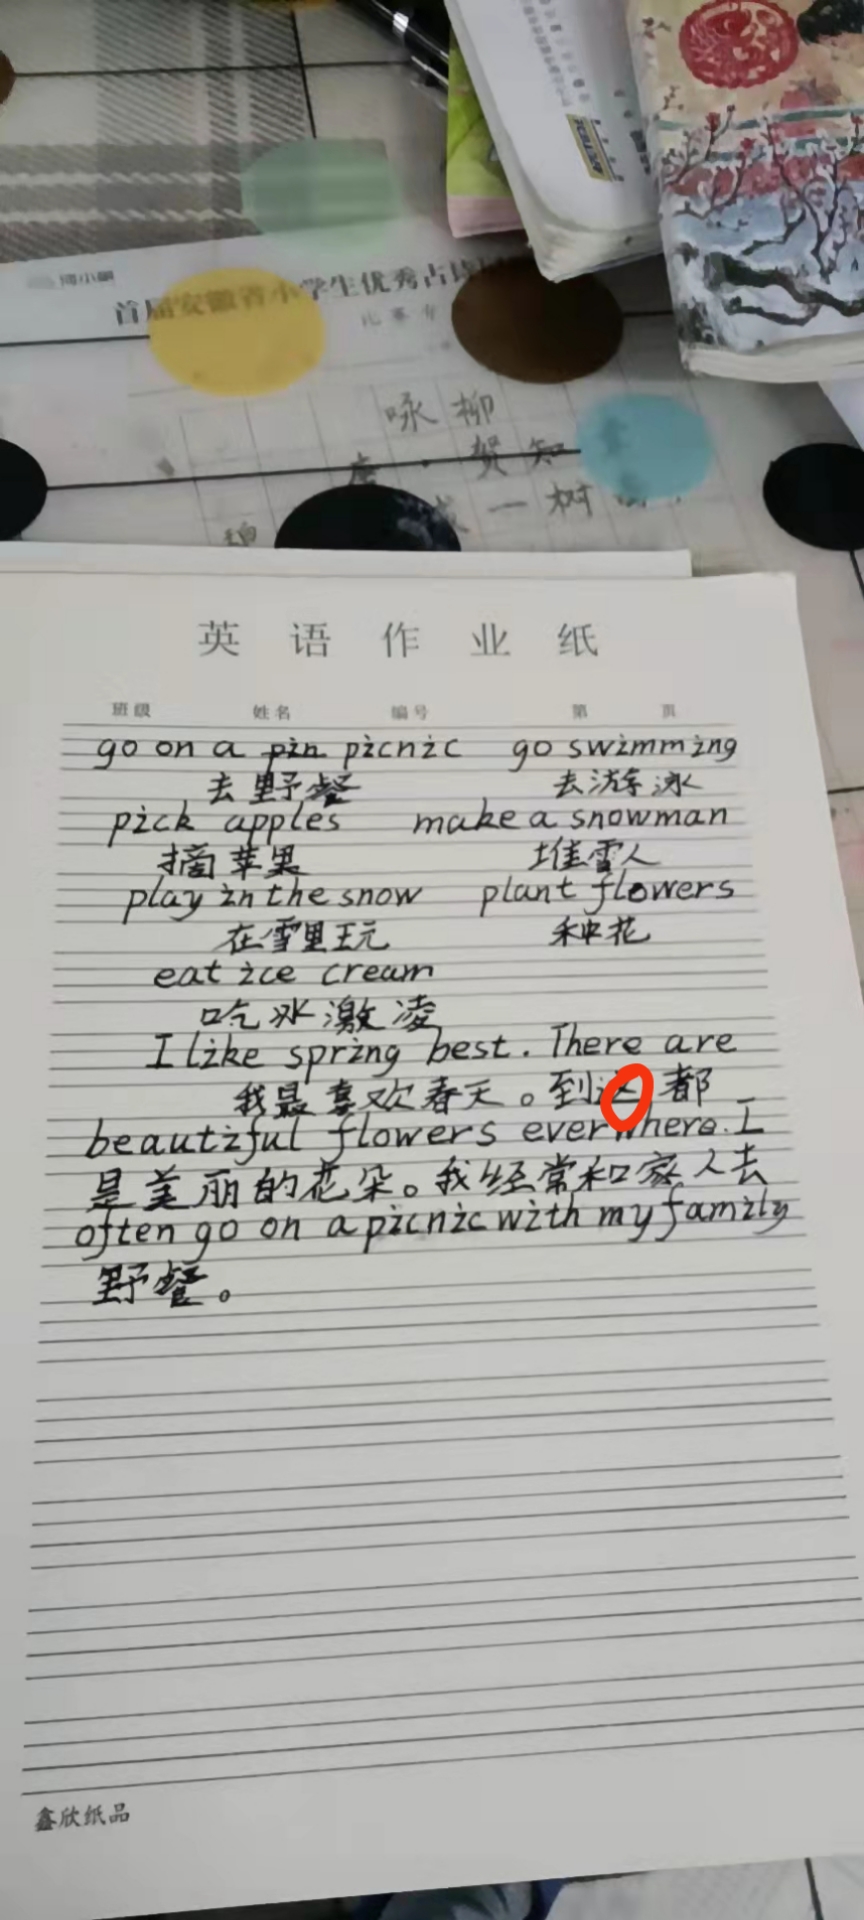 首届安徽省小学生优秀古诗
比赛专
咏柳
贺知
一树
英语作业纸
班级 姓名 编号 第 页
go on a pin picnic go swimming
去野餐 去游泳
pick apples make a snowman
摘苹果 堆雪人
play in the snow plant flowers
在雪里玩 种花
eat ice cream
吃冰激凌
I like spring best. There are
我最喜欢春天。到这都
beautiful flowers everwhere. I
是美丽的花朵。我经常和家人去
often go on a picnic with my family
野餐。
鑫欣纸品